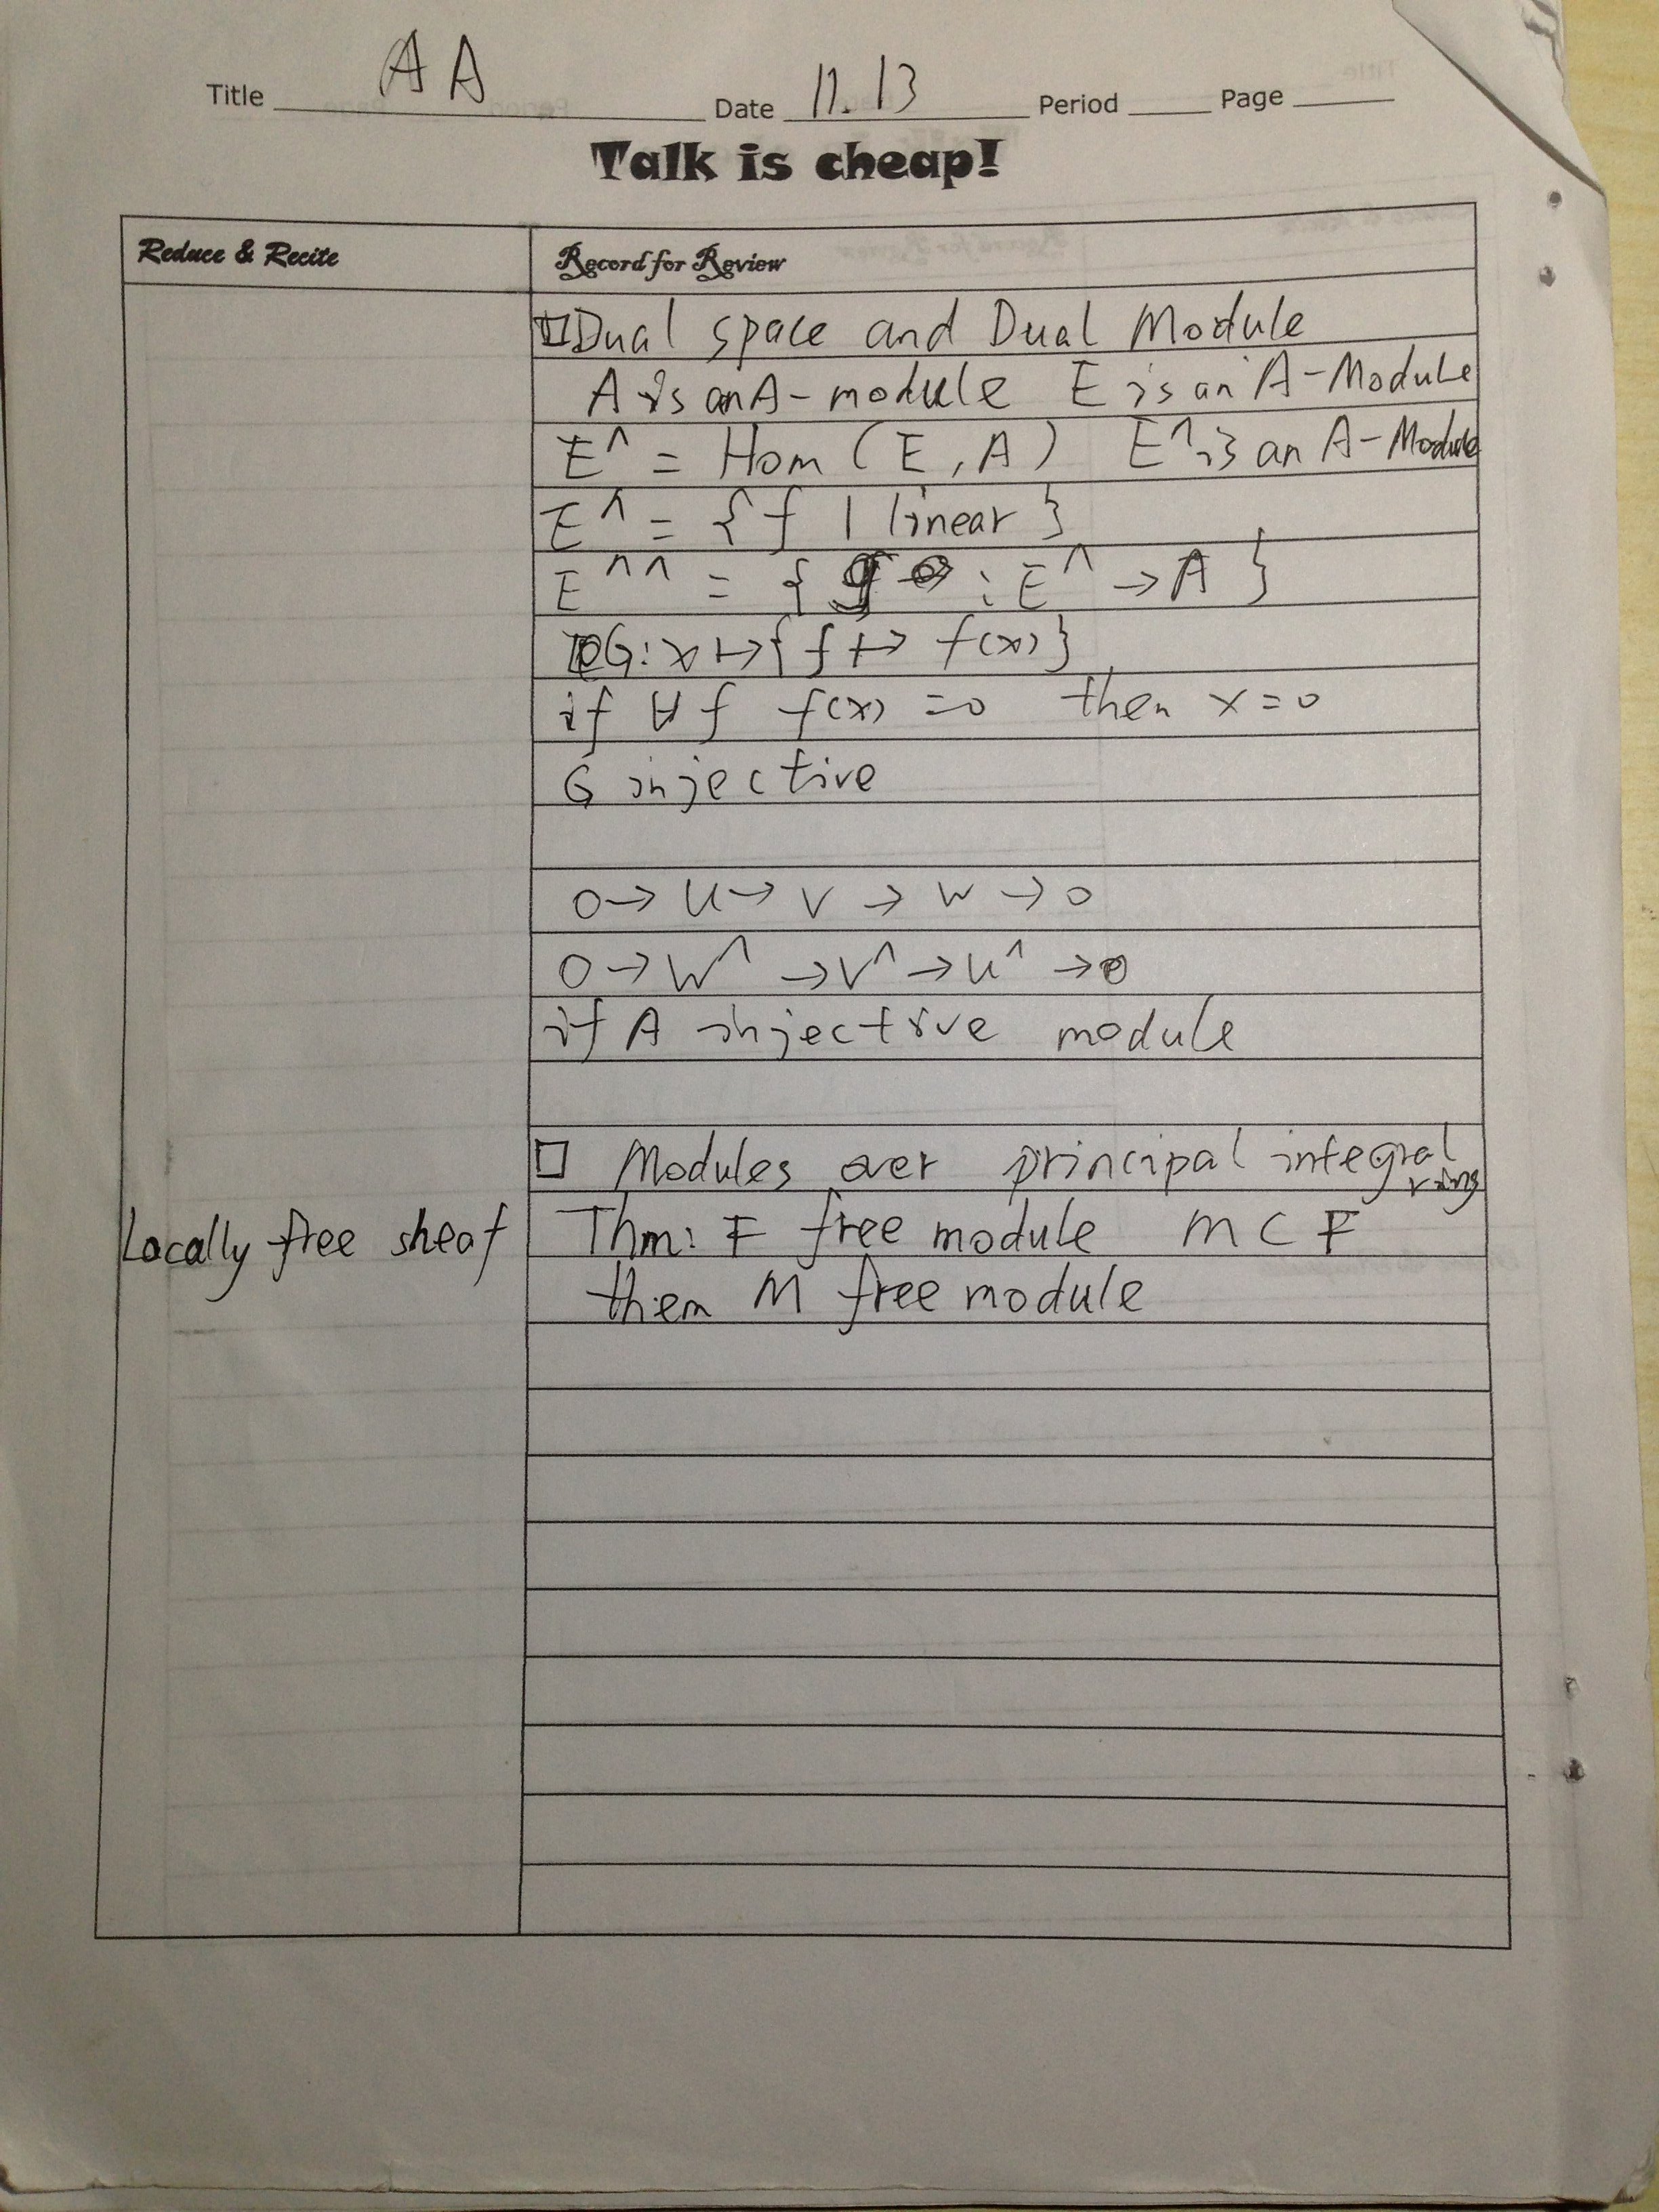 Title AA Date 11.13 Period Page
Talk is cheap!
Reduce & Recite
Record for Review
□ Dual space and Dual Module
A is an A-module E is an A-Module
E^ = Hom (E, A) E^ is an A-Module
E^ = { f | linear }
E^^ = { g : E^ → A }
G: x ↦ { f ↦ f(x) }
if ∀ f f(x) = 0 then x = 0
G injective
0 → U → V → W → 0
0 → W^ → V^ → U^ → 0
if A injective module
□ Modules over principal integral ring
Locally free sheaf
Thm: F free module M ⊂ F
then M free module